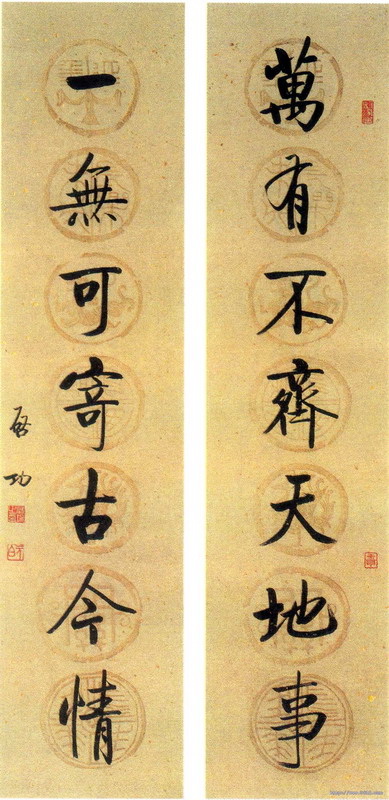 萬有不齊天地事
一無可寄古今情
啟功